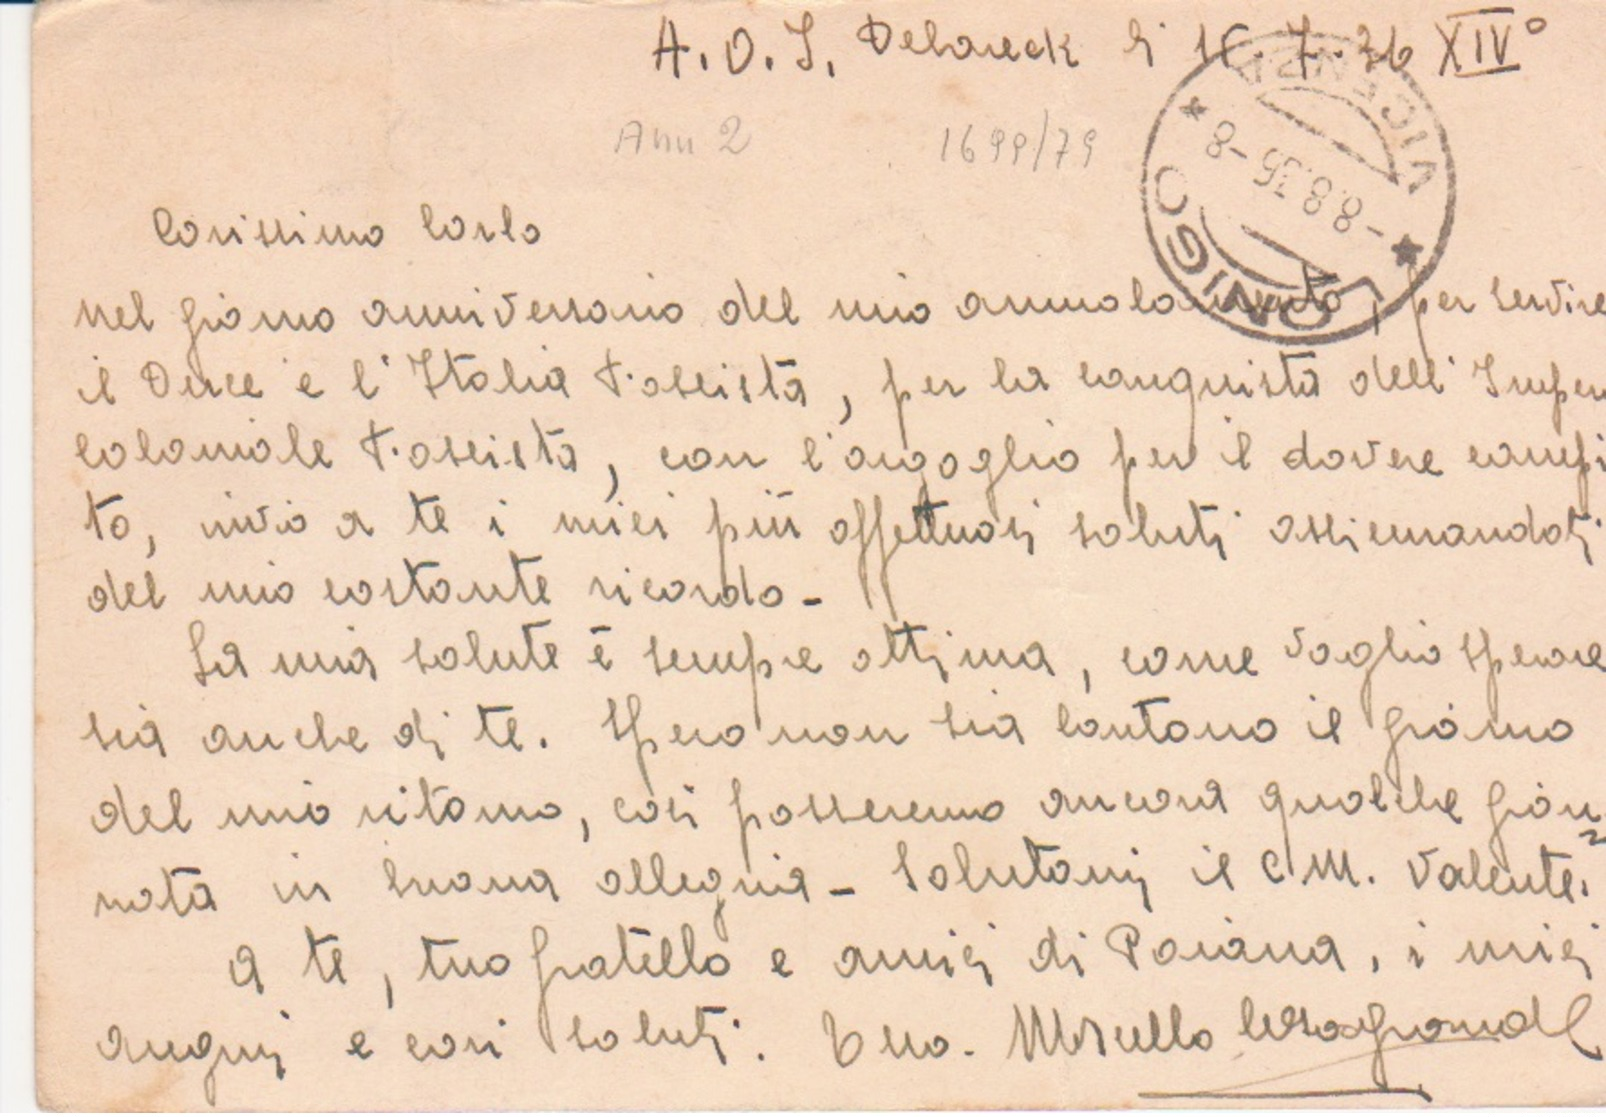 A.O.I. Debareck li 16.7.36 XIV°
Ann 2 1699/79
VICENZA
-8.8.35-8
LONIGO
Carissimo Carlo
nel giorno anniversario del mio arruolamento, per servire
il Duce e l'Italia Fascista, per la conquista dell'Imper
coloniale Fascista, con l'orgoglio per il dovere compi
to, invio a te i miei più affettuosi saluti assicurandoti
del mio costante ricordo-
La mia salute è sempre ottima, come voglio sperare
sia anche di te. Spero non sia lontano il giorno
del mio ritorno, così passeremo ancora qualche gior
nata in buona allegria- Salutami il C.M. Valente.
A te, tuo fratello e amici di Poiana, i miei
auguri e cari saluti. Tuo.